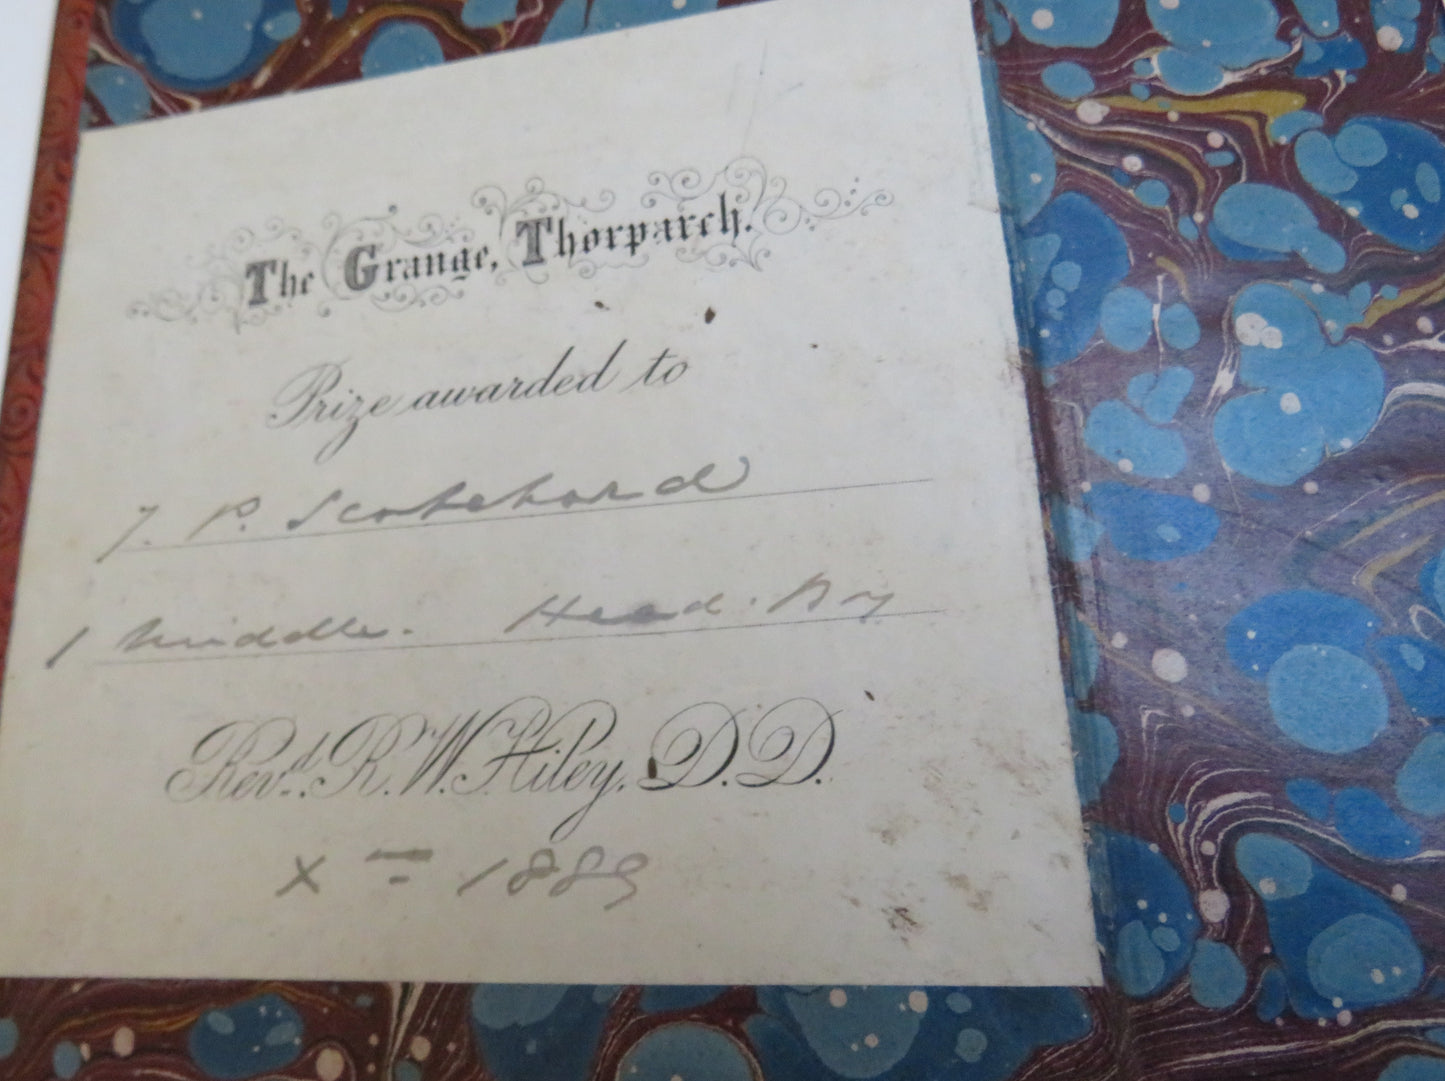 The Grange, Thorparch.
Prize awarded to
J. P. Scotchard
1 Middle. Head. Boy
Revd. R. W. Hiley, D.D.
Xms 1889